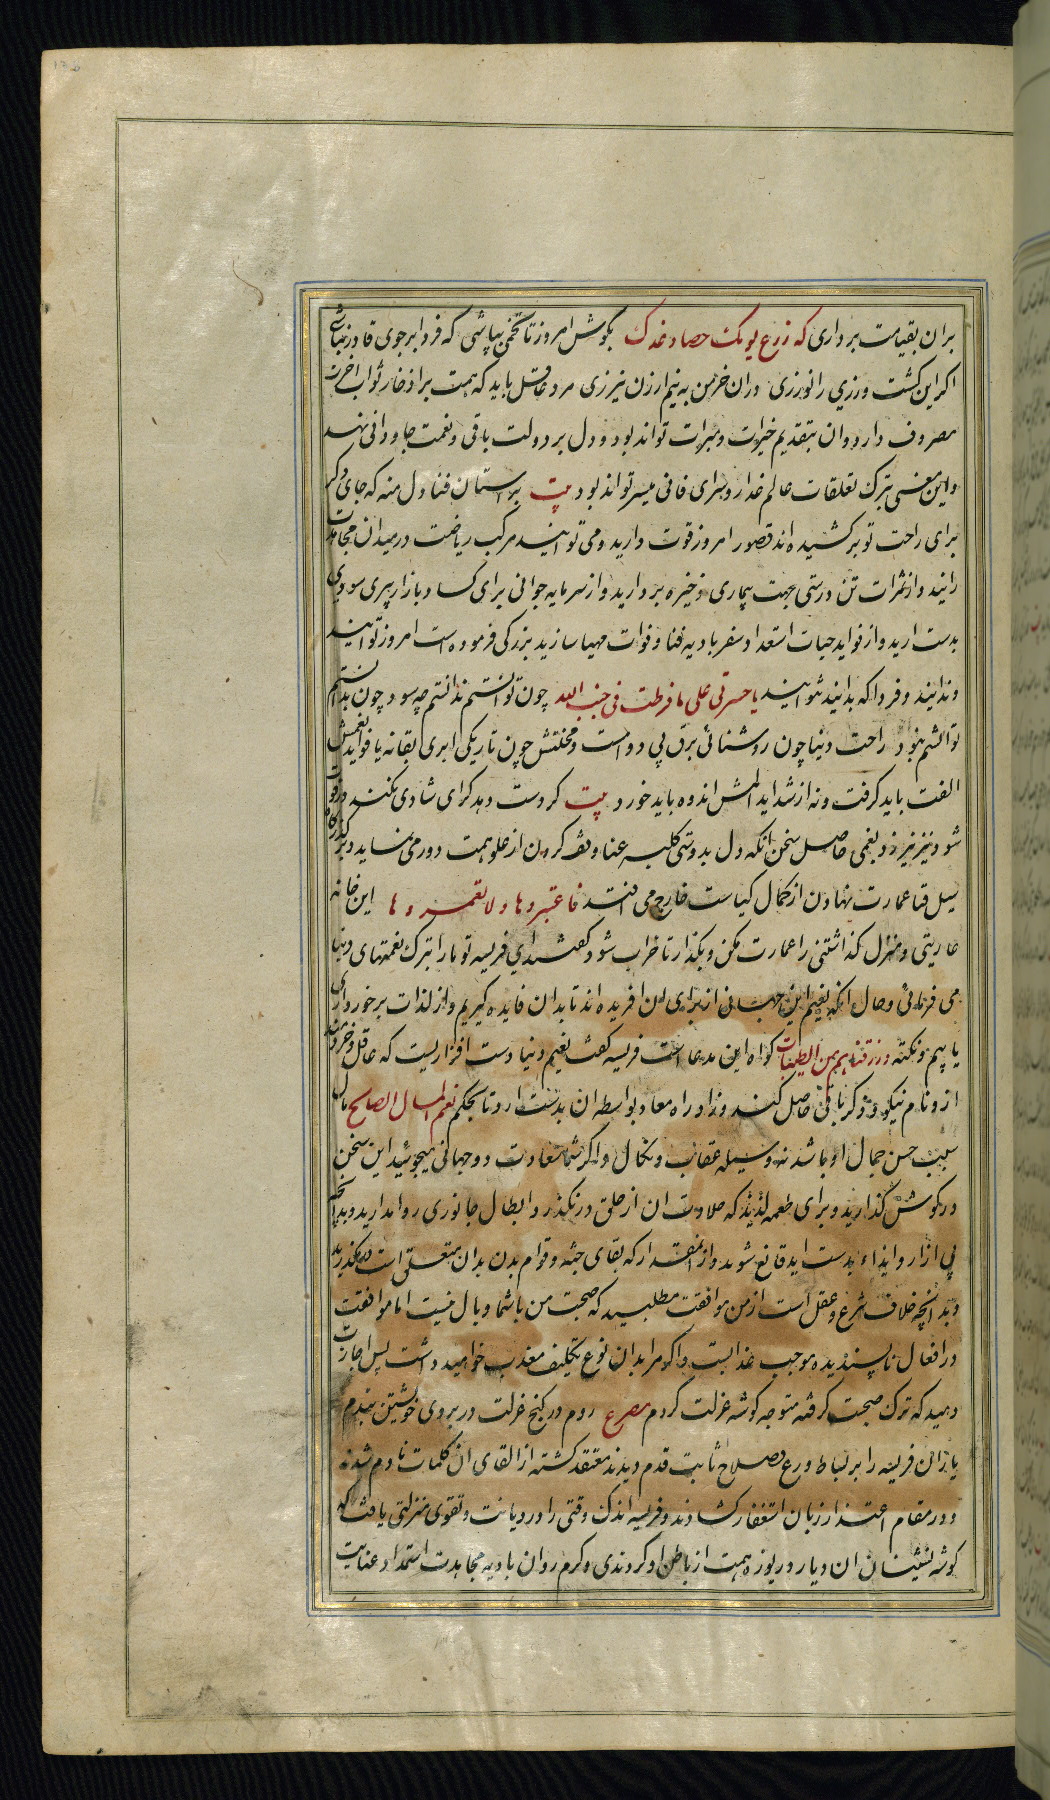 بران بقیامت برداری که زرع یومک حصاد غدک بکوش امروز تا تخمی بپاشی که فردا بر جوی قادر نباشی
اکر این کشت ورزی را نورزی دران خرمن به نیم ارزن نیرزی مرد عاقل باید که همت بر اذخار ثواب اخرت
مصروف دارد وان بتقدیم خیرات و مبرات تواند بود و دل بر دولت باقی و نعمت جاودانی نهد
واین معنی بترک تعلقات عالم غدار و سرای فانی میسر تواند بود بیت بر استان فنا دل منه که جای دکر
برای راحت تو بر کشیده اند قصور امروز قوت دارید و می توانید مرکب ریاضت در میدان مجاهدت
رانید و از ثمرات تن درستی بجهت بیماری ذخیره بردارید و از سرمایه جوانی برای کساد بازار پیری سودی
بدست ارید و از فواید حیات استعداد سفر بادیه فنا و فوات مهیا سازید بزرکی فرموده است امروز توانید
و ندانید و فردا که بدانید نتوانید یا حسرتی علی ما فرطت فی جنب الله چون توانستم ندانستم چه سود چون بدانستم
توانستم نبود راحت دنیا چون روشنائی برق بی دوامست و محنتش چون تاریکی ابر بی بقا نه با فواید نعمتش
الفت باید کرفت و نه از شداید المش اندوه باید خورد بیت کر دست دهد کرای شادی نکند ور فوت
شود نیز نیرزد بغمی حاصل سخن انکه دل بدوستی کلبه عنا وقف کردن از علو همت دور می نماید و بر گذرگاه
سیل فنا عمارت نهادن از کمال کیاست خارج می افتد فاعتبروها و لا تعمروها این خانه
عاریتی و منزل کذاشتنی را عمارت مکن و بکذار تا خراب شود کفتند ای فریسه تو ما را بترک نعمتهای دنیا
می فرمائی و حال انکه نعیم این جهانی از برای ان افریده اند تا بدان فایده کیریم و از لذات برخورداری
یابیم و نکته ورزقناهم من الطیبات کواه این مدعاست فریسه کفت نعیم دنیا دست افزاریست که عاقل و خردمند
ازو نام نیکو و ذکر باقی حاصل کند و زاد راه معاد بواسطه ان بدست ارد تا بحکم نعم المال الصالح مال
سبب حسن حال او باشد نه وسیله عقاب و نکال و اکر شما سعادت دو جهانی میجوئید این سخن
در کوش کذارید و برای طعمه لذیذ که حلاوت ان از حلق در نکذرد ابطال جانوری روا مدارید و بدانچه
بی ازار و ایذاء بدست اید قانع شوید و از انمقدار که بقای جثه و قوام بدن بدان متعلق است در نکذرید
وبد انچه خلاف شرع و عقل است از من موافقت مطلبید که صحبت من با شما وبال نیست اما موافقت
در افعال ناپسندیده موجب عذابست و اکر مرا بدان نوع تکلیف معذب خواهید داشت پس اجازت
دهید که ترک صحبت کرفته متوجه کوشه عزلت کردم مصرع روم در کنج عزلت در بروی خویشتن بندم
یاران فریسه را بر بساط ورع و صلاح ثابت قدم دیدند معتقد کشته از القای ان کلمات نادم شدند
و در مقام اعتذار زبان استغفار کشادند و فریسه اندک وقتی را در دیانت و تقوی منزلتی یافت که
کوشه نشینان ان دیار دریوزه همت از باطن او کردندی و کرم روان بادیه مجاهدت استمداد عنایت